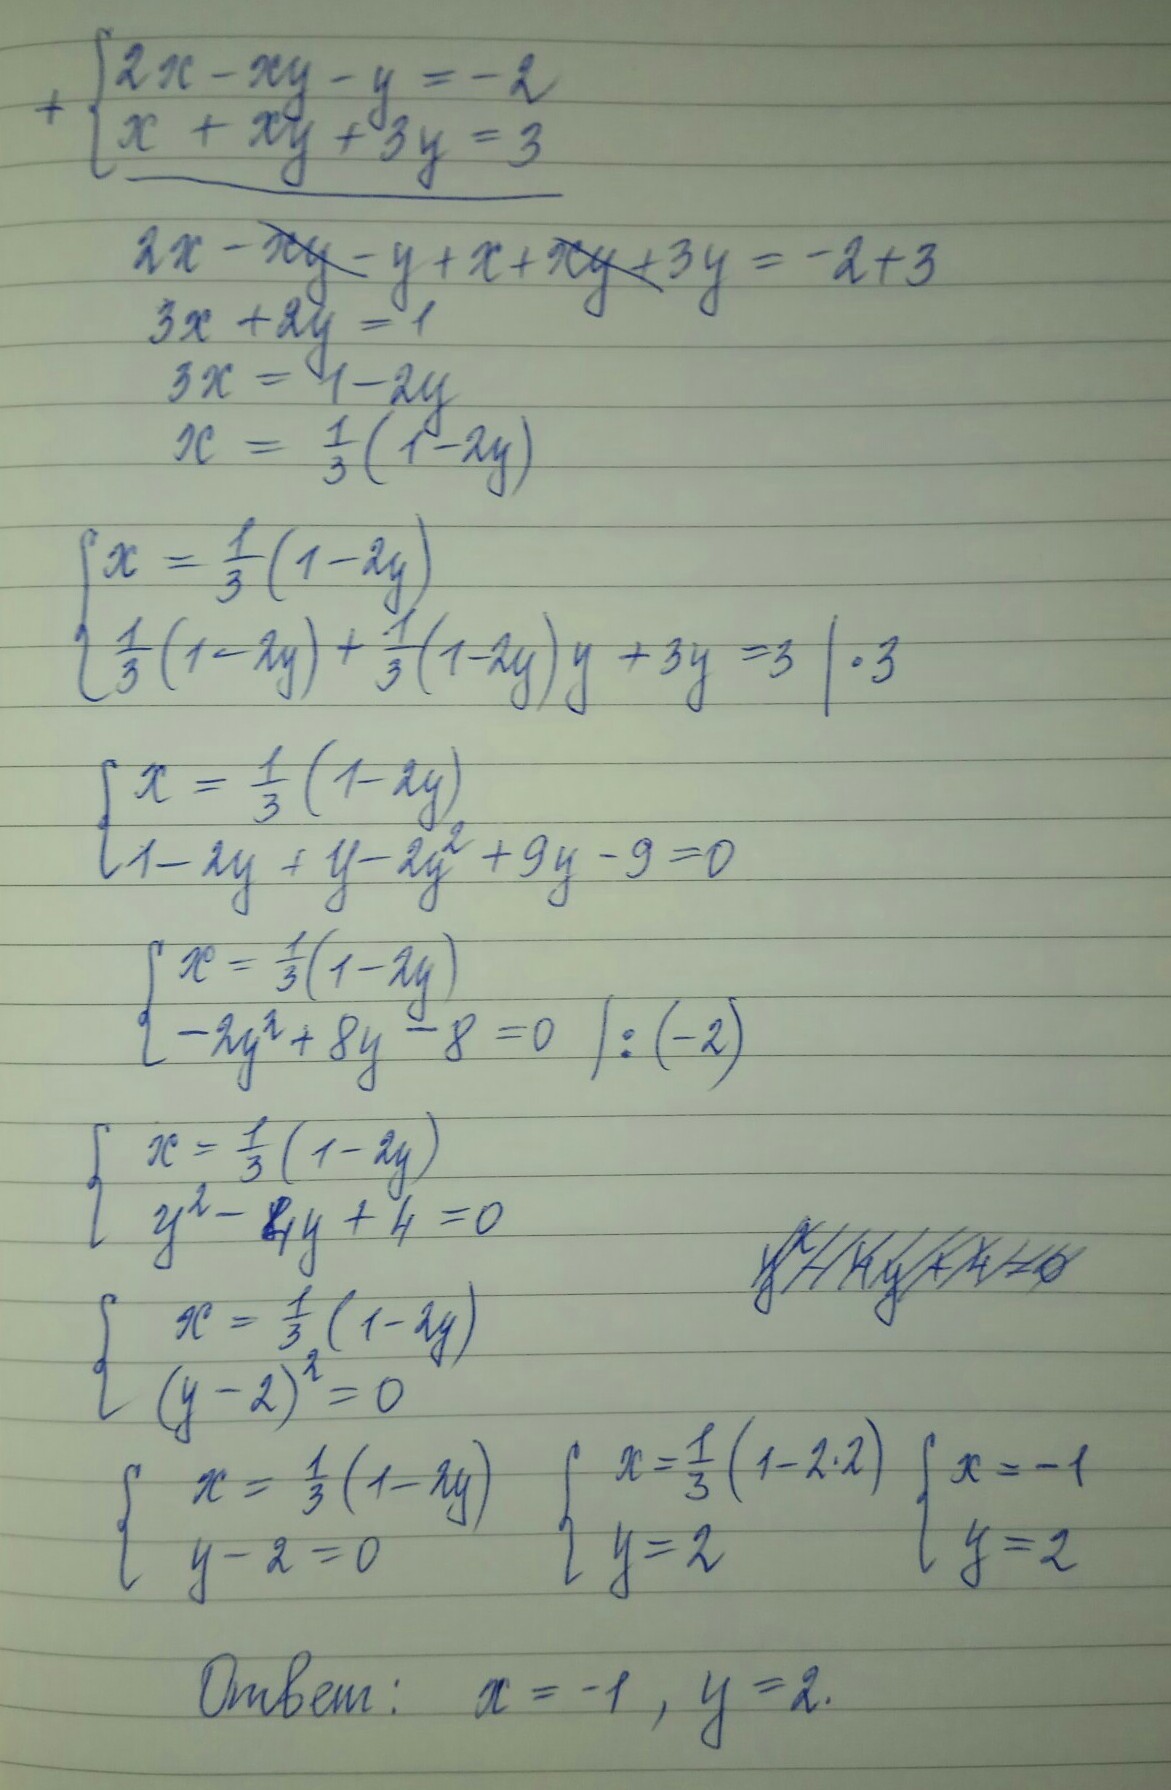 + { 2x - xy - y = -2
x + xy + 3y = 3
2x - xy - y + x + xy + 3y = -2 + 3
3x + 2y = 1
3x = 1 - 2y
x = 1/3 (1 - 2y)
{ x = 1/3 (1 - 2y)
1/3 (1 - 2y) + 1/3 (1 - 2y) y + 3y = 3 | · 3
{ x = 1/3 (1 - 2y)
1 - 2y + y - 2y² + 9y - 9 = 0
{ x = 1/3 (1 - 2y)
-2y² + 8y - 8 = 0 | : (-2)
{ x = 1/3 (1 - 2y)
y² - 4y + 4 = 0
y² - 4y + 4 = 0
{ x = 1/3 (1 - 2y)
(y - 2)² = 0
{ x = 1/3 (1 - 2y) { x = 1/3 (1 - 2·2) { x = -1
y - 2 = 0 y = 2 y = 2
Ответ: x = -1, y = 2.